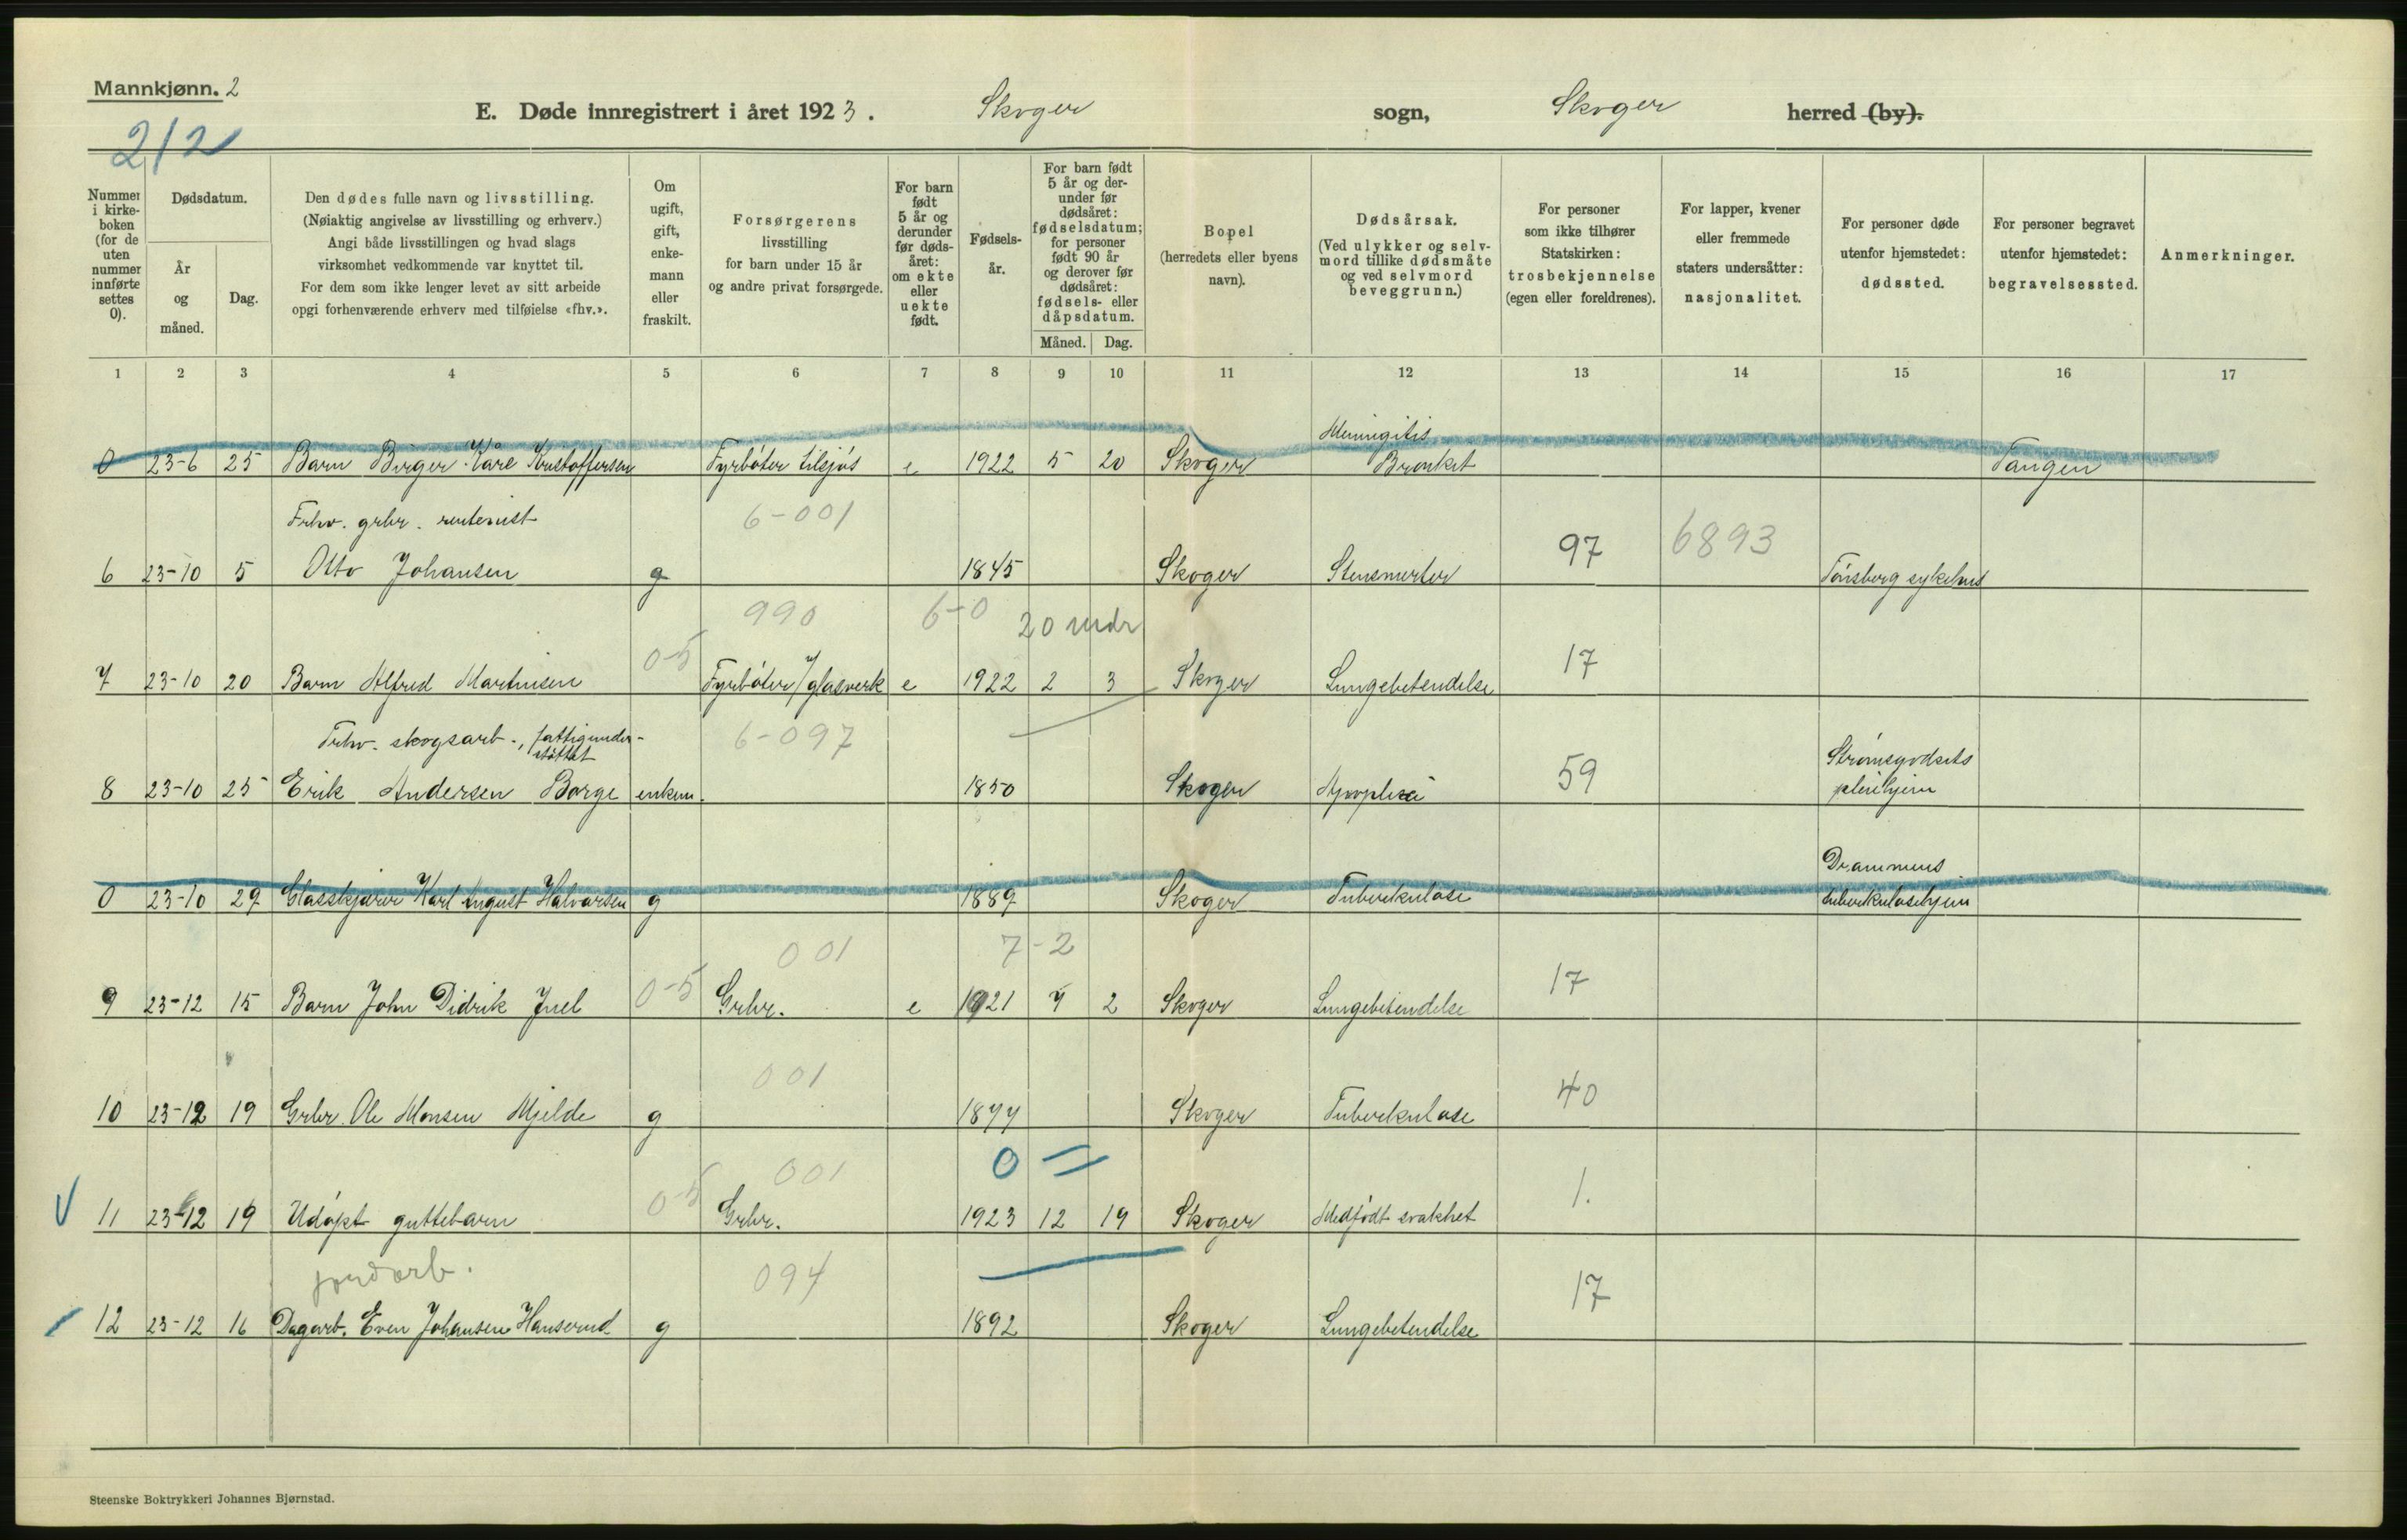 Mannkjønn. 2
E. Døde innregistrert i året 1923. Skoger sogn, Skoger herred (by).
212
Nummer i kirke- boken (for de uten nummer innførte settes 0).
Dødsdatum.
År og måned.
Dag.
Den dødes fulle navn og livsstilling.
(Nøiaktig angivelse av livsstilling og erhverv.)
Angi både livsstillingen og hvad slags
virksomhet vedkommende var knyttet til.
For dem som ikke lenger levet av sitt arbeide
opgi forhenværende erhverv med tilføielse «fhv.».
Om ugift, gift, enke- mann eller fraskilt.
Forsørgerens
livsstilling
for barn under 15 år
og andre privat forsørgede.
For barn født 5 år og derunder før døds- året: om ekte eller uekte født.
Fødsels- år.
For barn født 5 år og der- under før dødsåret: fødselsdatum; for personer født 90 år og derover før dødsåret: fødsels- eller dåpsdatum.
Måned. Dag.
Bopel
(herredets eller byens
navn).
Dødsårsak.
(Ved ulykker og selv-
mord tillike dødsmåte
og ved selvmord
beveggrunn.)
For personer
som ikke tilhører
Statskirken:
trosbekjennelse
(egen eller foreldrenes).
For lapper, kvener
eller fremmede
staters undersåtter:
nasjonalitet.
For personer døde
utenfor hjemstedet:
dødssted.
For personer begravet
utenfor hjemstedet:
begravelsessted.
Anmerkninger.
1 2 3 4 5 6 7 8 9 10 11 12 13 14 15 16 17
Meningitis
0 23-6 25 Barn Birger Kåre Kristoffersen Fyrbøter tilsjøs e 1922 5 20 Skoger Bronkit Tangen
Frhv. grbr. rentenist 6-001
6 23-10 5 Otto Johansen g 1845 Skoger Stensmerter 97 6893 Tønsberg sykehus
990 6-0 20 mdr
7 23-10 20 Barn Alfred Martinsen 0-5 Fyrbøter/glasverk e 1922 2 3 Skoger Lungebetendelse 17
Frhv. skogsarb., fattigunder-
støttet 6-097
8 23-10 25 Erik Andersen Borge enkem. 1850 Skoger Apoplexi 59 Strømsgodsets
pleiehjem
Drammens
0 23-10 29 Glasskjærer Karl August Halvorsen g 1889 Skoger Tuberkulose tuberkulosehjem
001 7-2
9 23-12 15 Barn John Didrik Juel 0-5 Grbr. e 1921 4 2 Skoger Lungebetendelse 17
001
10 23-12 19 Grbr. Ole Monsen Mjelde g 1877 Skoger Tuberkulose 40
001 0 =
11 23-12 19 Udøpt guttebarn 0-5 Grbr. 1923 12 19 Skoger Medfødt svakhet 1.
jordarb. 094
12 23-12 16 Dagarb. Even Johansen Hanserud g 1892 Skoger Lungebetendelse 17
Steenske Boktrykkeri Johannes Bjørnstad.